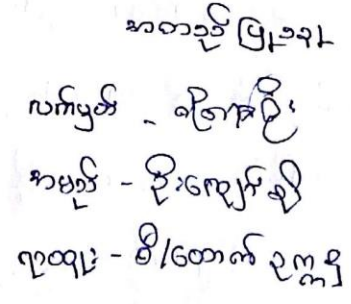 အတည်ပြုသူ
လက်မှတ် -
အမည် - ဦးကျော်မို
ရာထူး - စီ/ထောက် ဥက္ကဋ္ဌ